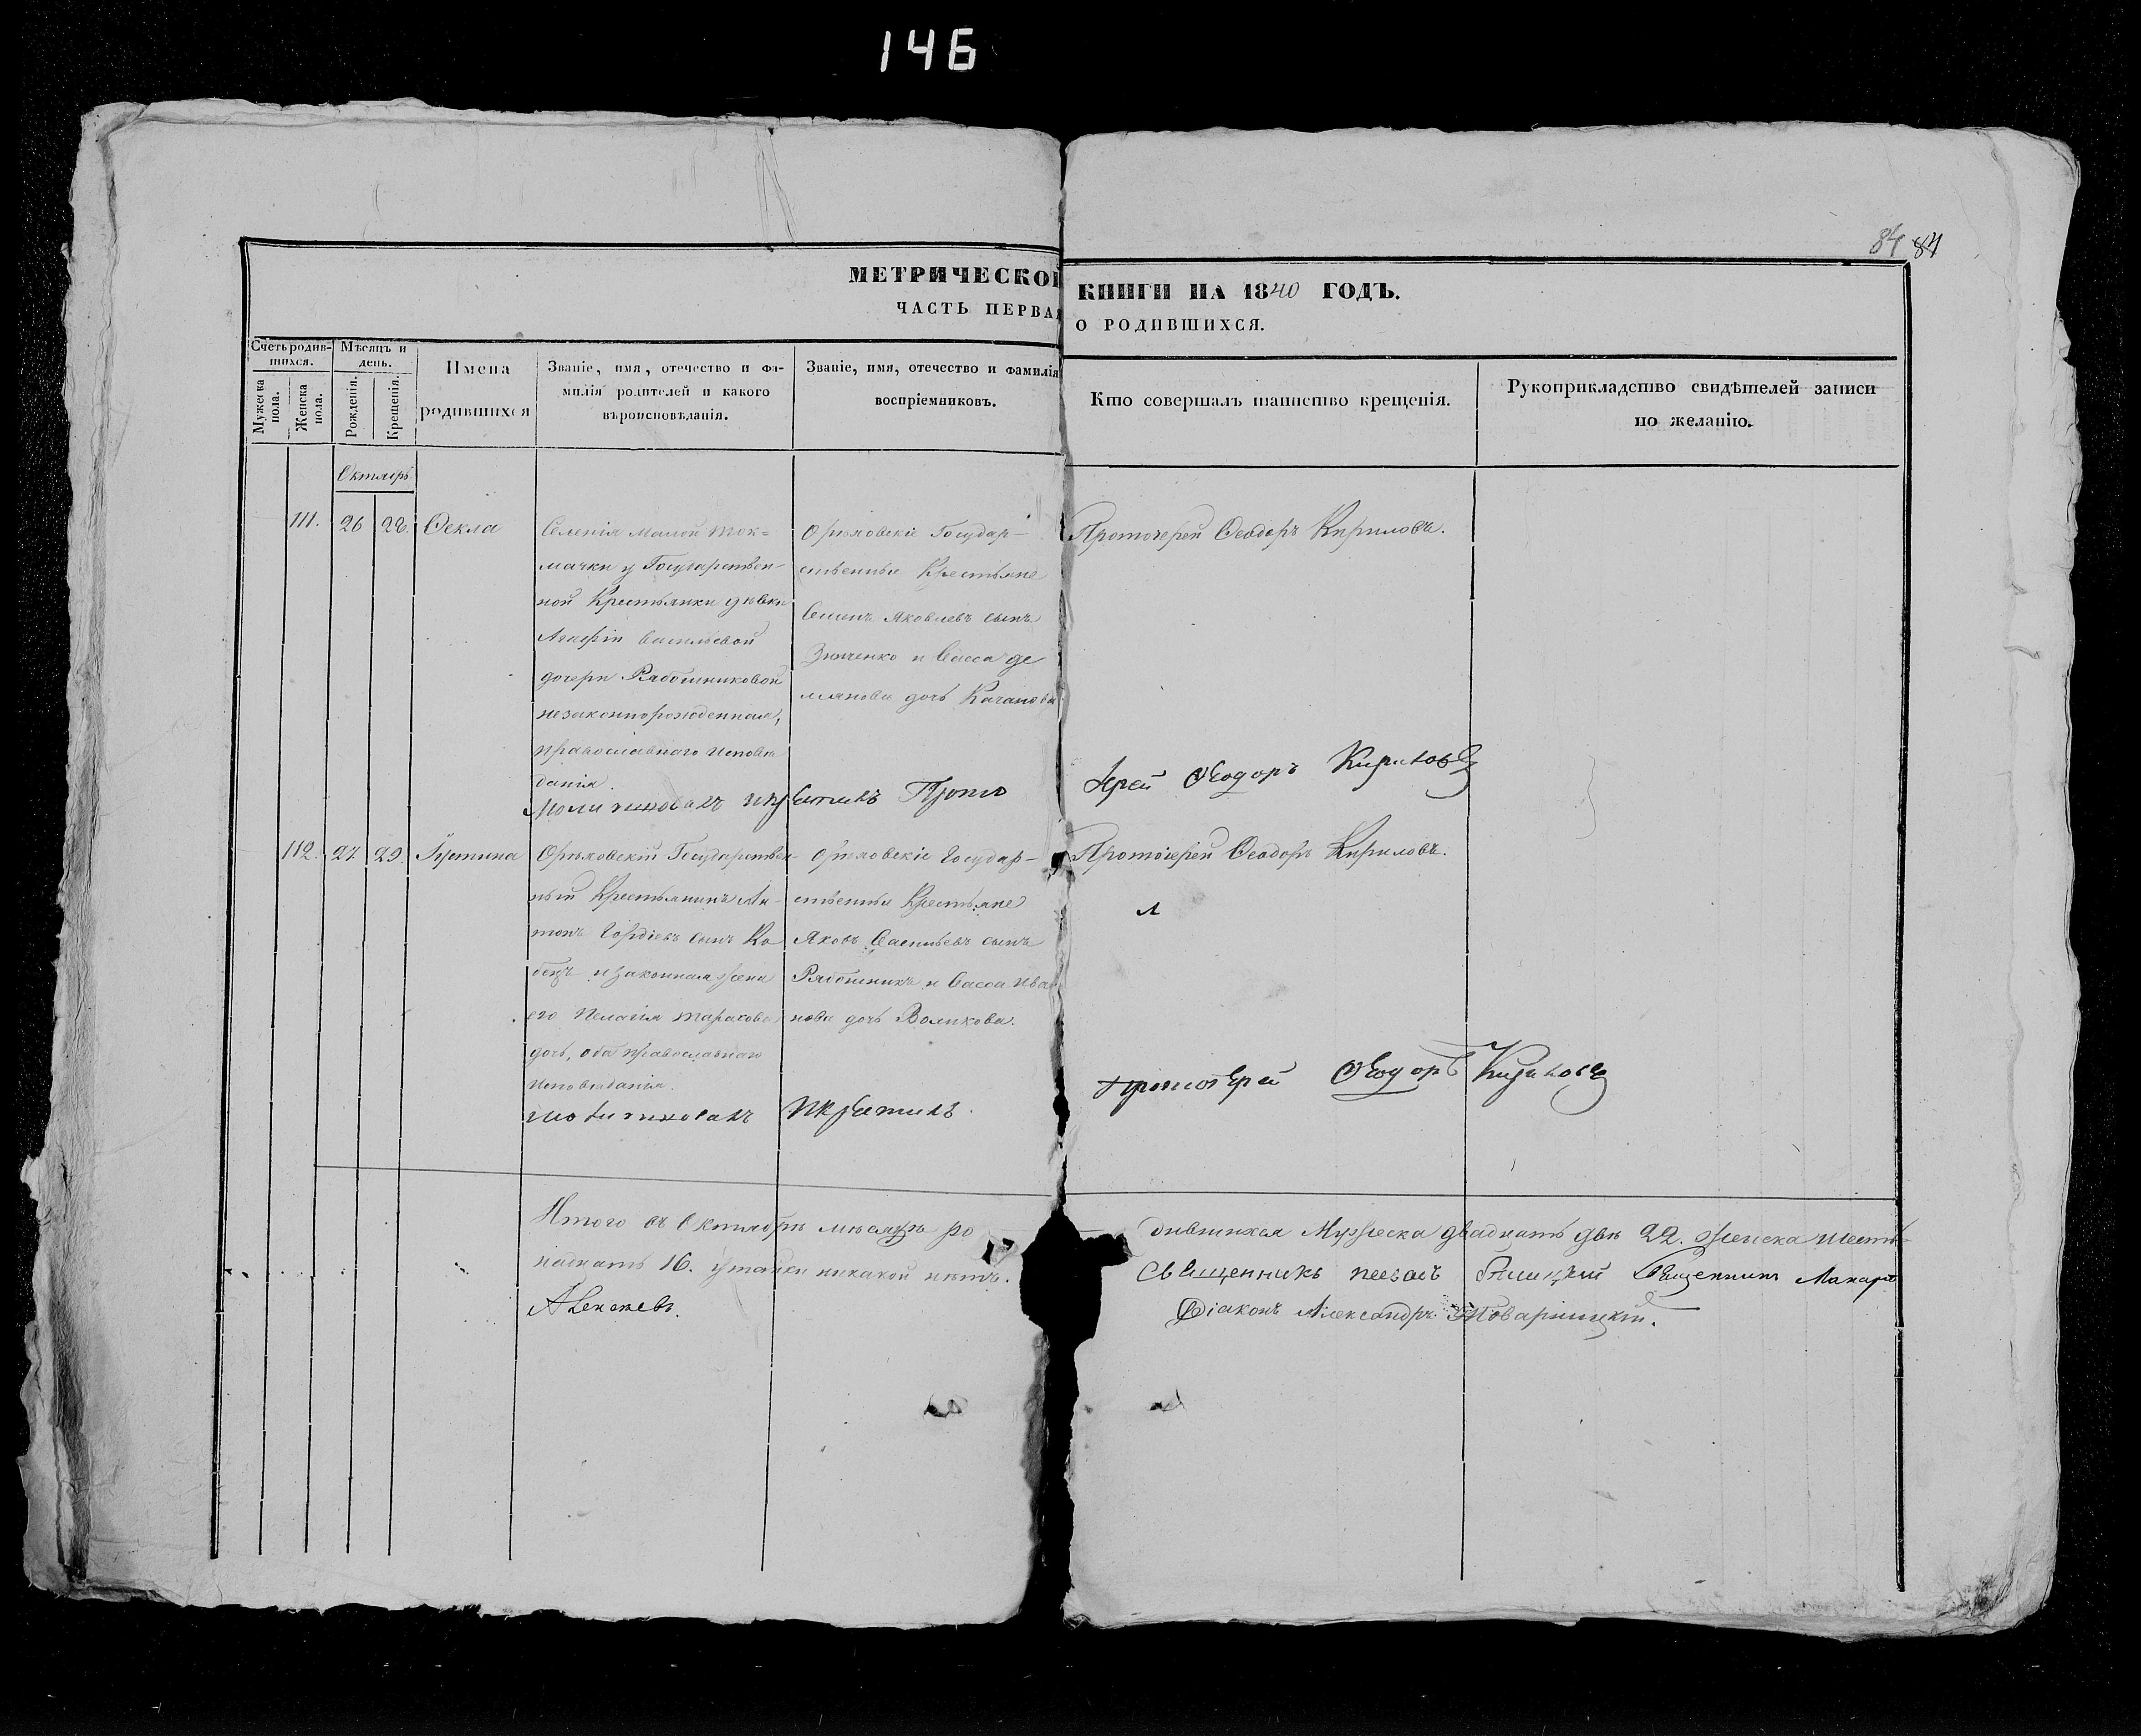 146
84 84
МЕТРИЧЕСКОЙ КНИГИ НА 1840 ГОДЪ.
ЧАСТЬ ПЕРВАЯ О РОДИВШИХСЯ.
Счетъ родив-
шихся.
Мужеска пола.
Женска пола.
Мѣсяцъ и
день.
Рожденія.
Крещенія.
Имена
родившихся
Званіе, имя, отечество и фа-
милія родителей и какого
вѣроисповѣданія.
Званіе, имя, отечество и фамилія
воспріемниковъ.
Кто совершалъ таинство крещенія.
Рукоприкладство свидѣтелей записи
по желанію.
Октябрь
111. 26 28. Ѳекла
Селенія Малой Ток=
мачки у Государствен-
ной Крестьянки дѣвки
Агафіи Васильевой
дочери Рябошниковой
незаконнорожденная,
православнаго исповѣ
данія.
Орѣховскіе Государ-
ственные Крестьяне
Семенъ Яковлевъ сынъ
Зинченко и Васса Де
мянова дочь Каганова
Протоіерей Ѳеодоръ Кириловъ.
Молитвовалъ и крестилъ Прото
Іерей Ѳеодоръ Кириловъ
112. 27 29. Іустина
Орѣховскій Государствен-
ный Крестьянинъ Ан-
тонъ Гордіевъ сынъ Ко
бецъ и законная жена
его Пелагія Тарасова
дочь, оба православнаго
исповѣданія.
Орѣховскіе Государ-
ственные Крестьяне
Яковъ Васильевъ сынъ
Рябошникъ и Васса Ива
нова дочь Воликова.
Протоіерей Ѳеодоръ Кириловъ.
молитвовалъ и крестилъ.
протоіерей Ѳеодоръ Кириловъ
Итого въ Октябрѣ мѣсяцѣ ро дившихся Мужеска двадцать два 22. женска шест-
надцать 16. утайки никакой нѣтъ. Священникъ Священникъ Макарі
Діаконъ Александръ Товарницкій.